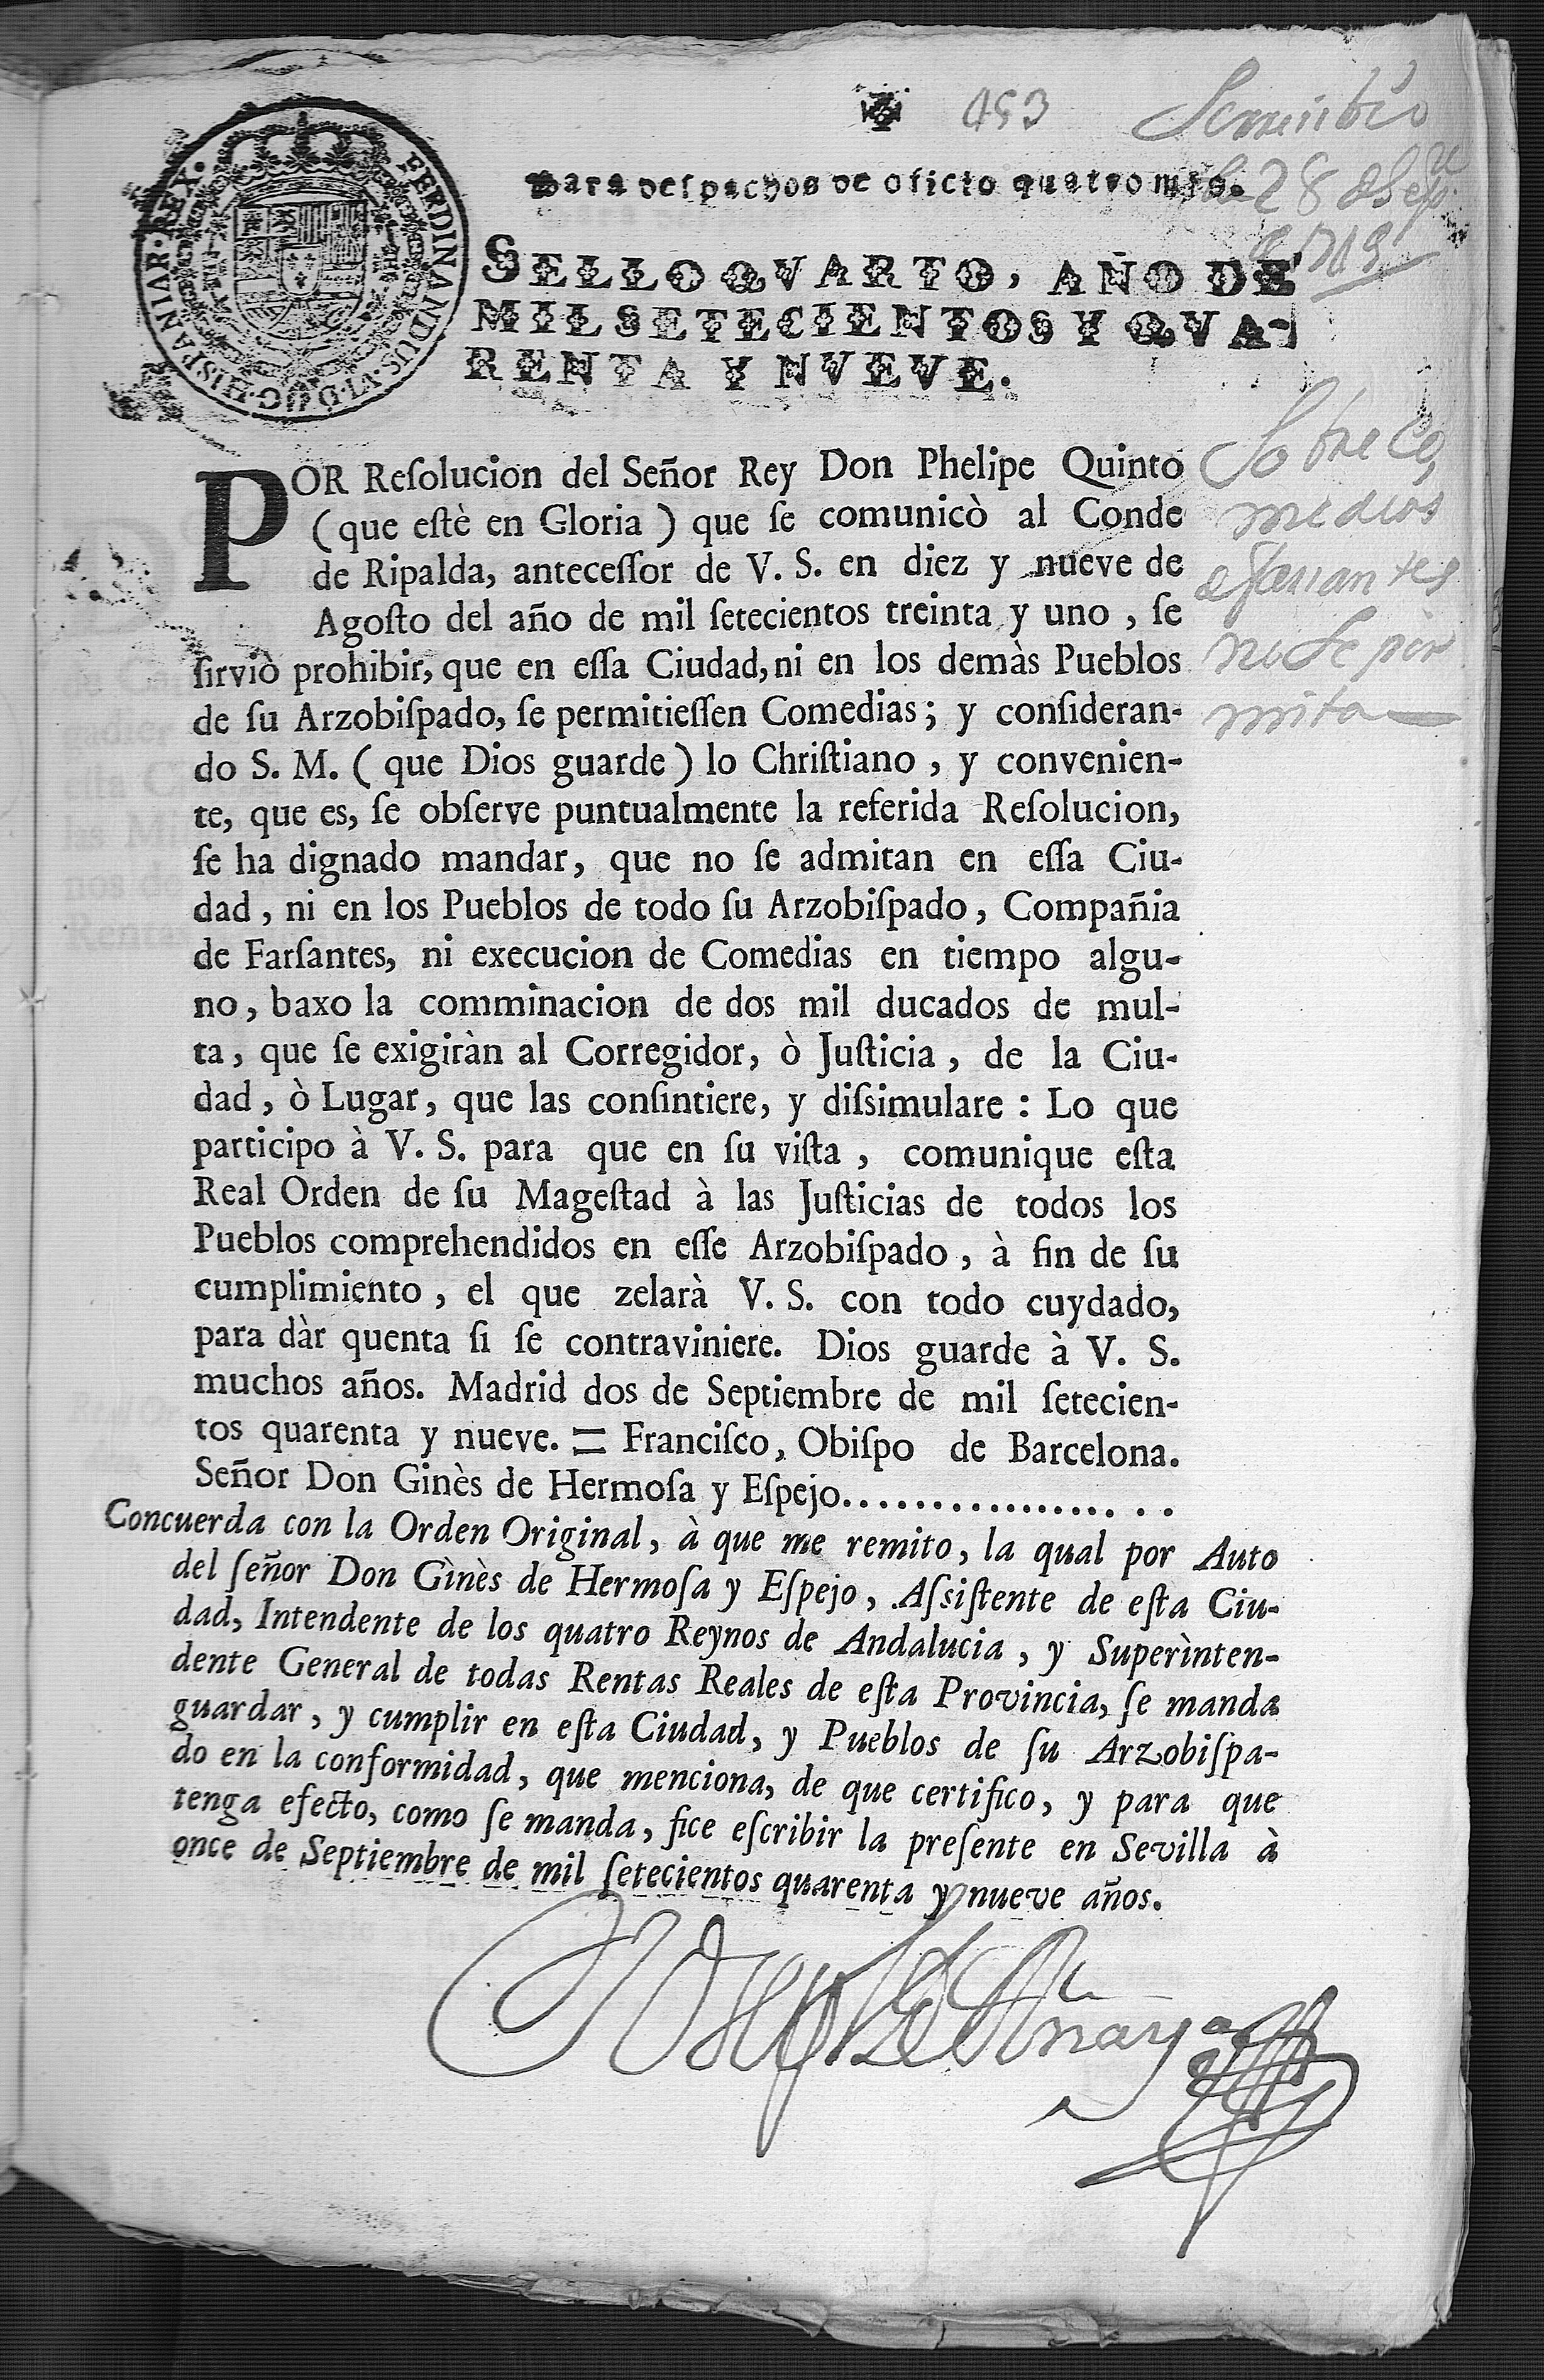 453
Para despachos de oficio quatro mrs.
SELLO QVARTO, AÑO DE
MIL SETECIENTOS Y QVA-
RENTA Y NVEVE.
FERDINANDUS·VI·D·G·HISPANIAR·REX·
28 de Sep.
Sobre Co
medias
farsantes
no se per
mita
POR Reſolucion del Señor Rey Don Phelipe Quinto
(que eſtè en Gloria) que ſe comunicò al Conde
de Ripalda, anteceſſor de V. S. en diez y nueve de
Agoſto del año de mil ſetecientos treinta y uno, ſe
ſirviò prohibir, que en eſſa Ciudad, ni en los demàs Pueblos
de ſu Arzobiſpado, ſe permitieſſen Comedias; y conſideran-
do S. M. (que Dios guarde) lo Chriſtiano, y convenien-
te, que es, ſe obſerve puntualmente la referida Reſolucion,
ſe ha dignado mandar, que no ſe admitan en eſſa Ciu-
dad, ni en los Pueblos de todo ſu Arzobiſpado, Compañia
de Farſantes, ni execucion de Comedias en tiempo algu-
no, baxo la comminacion de dos mil ducados de mul-
ta, que ſe exigiràn al Corregidor, ò Juſticia, de la Ciu-
dad, ò Lugar, que las conſintiere, y diſsimulare: Lo que
participo à V. S. para que en ſu viſta, comunique eſta
Real Orden de ſu Mageſtad à las Juſticias de todos los
Pueblos comprehendidos en eſſe Arzobiſpado, à fin de ſu
cumplimiento, el que zelarà V. S. con todo cuydado,
para dàr quenta ſi ſe contraviniere. Dios guarde à V. S.
muchos años. Madrid dos de Septiembre de mil ſetecien-
tos quarenta y nueve. = Franciſco, Obiſpo de Barcelona.
Señor Don Ginès de Hermoſa y Eſpejo...................
Concuerda con la Orden Original, à que me remito, la qual por Auto
del ſeñor Don Gìnès de Hermoſa y Eſpejo, Aſsiſtente de eſta Ciu-
dad, Intendente de los quatro Reynos de Andalucia, y Superìnten-
dente General de todas Rentas Reales de eſta Provincia, ſe manda
guardar, y cumplir en eſta Ciudad, y Pueblos de ſu Arzobiſpa-
do en la conformidad, que menciona, de que certifico, y para que
tenga efecto, como ſe manda, fice eſcribir la preſente en Sevilla à
once de Septiembre de mil ſetecientos quarenta y nueve años.